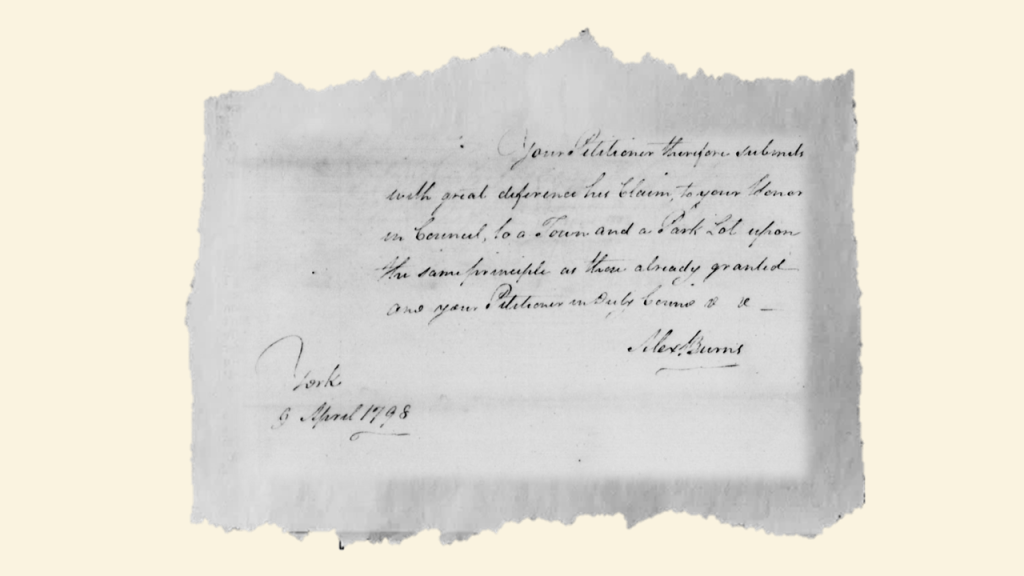 Your Petitioner therefore submits
with great deference his Claim, to your Honor
in Council, to a Town and a Park Lot upon
the same principle as those already granted
and your Petitioner in duty bound & &
Alexr. Burns
York
9 April 1798